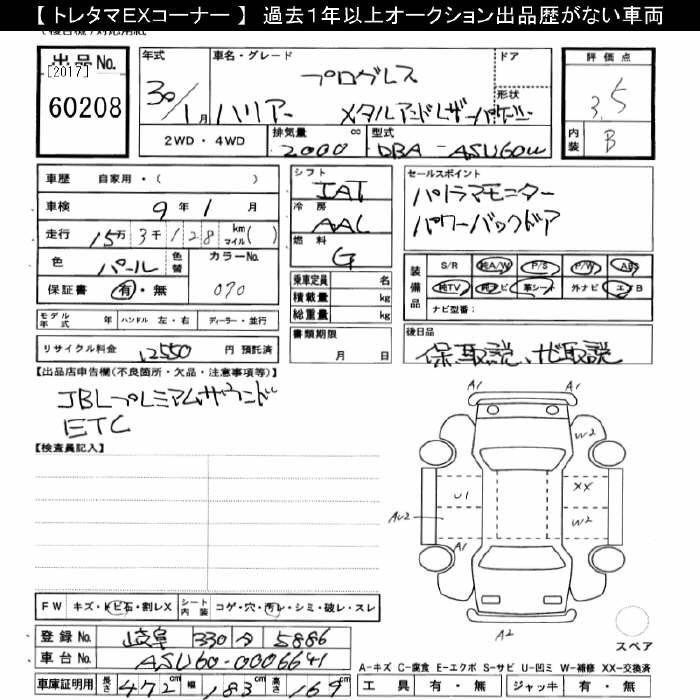 【 トレタマEXコーナー 】 過去1年以上オークション出品歴がない車両
出品No.
[2017]
60208
年式
30/1月
車名・グレード
プログレス
ハリアー メタルアンドレザーパッケージ
ドア
形状
評価点
3.5
内装 B
2WD・4WD
排気量 2000 cc
型式 DBA-ASU60W
車歴 自家用・( )
車検 9年1月
走行 15万3千128 km マイル( )
色 パール 色替 カラーNo. 070
保証書 有・無
モデル年式 年 ハンドル 左・右 ディーラー・並行
リサイクル料金 12550 円 預託済
シフト IAT
冷房 AAC
燃料 G
乗車定員 名
積載量 kg
総重量 kg
書類期限 月 日
セールスポイント
パノラマモニター
パワーバックドア
装備品 S/R 純A/W P/S P/W ABS
純TV 純ナビ 革シート 外ナビ エアB
ナビ型番:
後日品
保、取説、ナビ取説
【出品店申告欄(不良箇所・欠品・注意事項等)】
JBLプレミアムサウンド
ETC
【検査員記入】
A1 A1
W2
U1 XX
AU2 W2
A1
A2
スペア
FW キズ・トビ石・割レX シート内装 コゲ・穴・汚レ・シミ・破レ・スレ
登録No. 岐阜 330 な 5886
車台No. ASU60-0006641
車庫証明用 長さ 472 cm 幅 183 cm 高さ 169 cm
A-キズ C-腐食 E-エクボ S-サビ U-凹ミ W-補修 XX-交換済
工具 有・無 ジャッキ 有・無